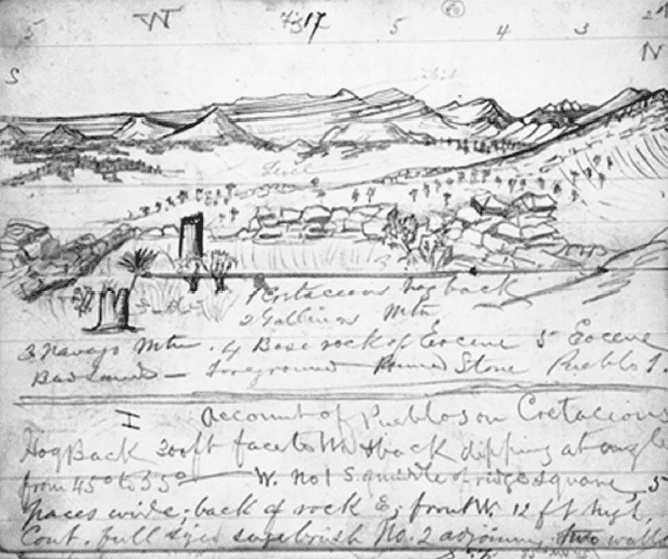 80
W Fig 17 5 4 3 2
5
S N
1 Cretaceous hog back
2 Gallinas Mtn
3 Navajo Mtn. 4 Base rock of Eocene 5 Eocene
Bad Lands — foreground Ruined Stone Pueblo
I account of Pueblos on Cretacious
Hog Back 300 ft face to W & back dipping at ang
from 45° to 55° W. No 1 S. middle of ridge square, 5
paces wide; back of rock E; front W. 12 ft high,
Cont. full sized sage brush No. 2 adjoining, two walls